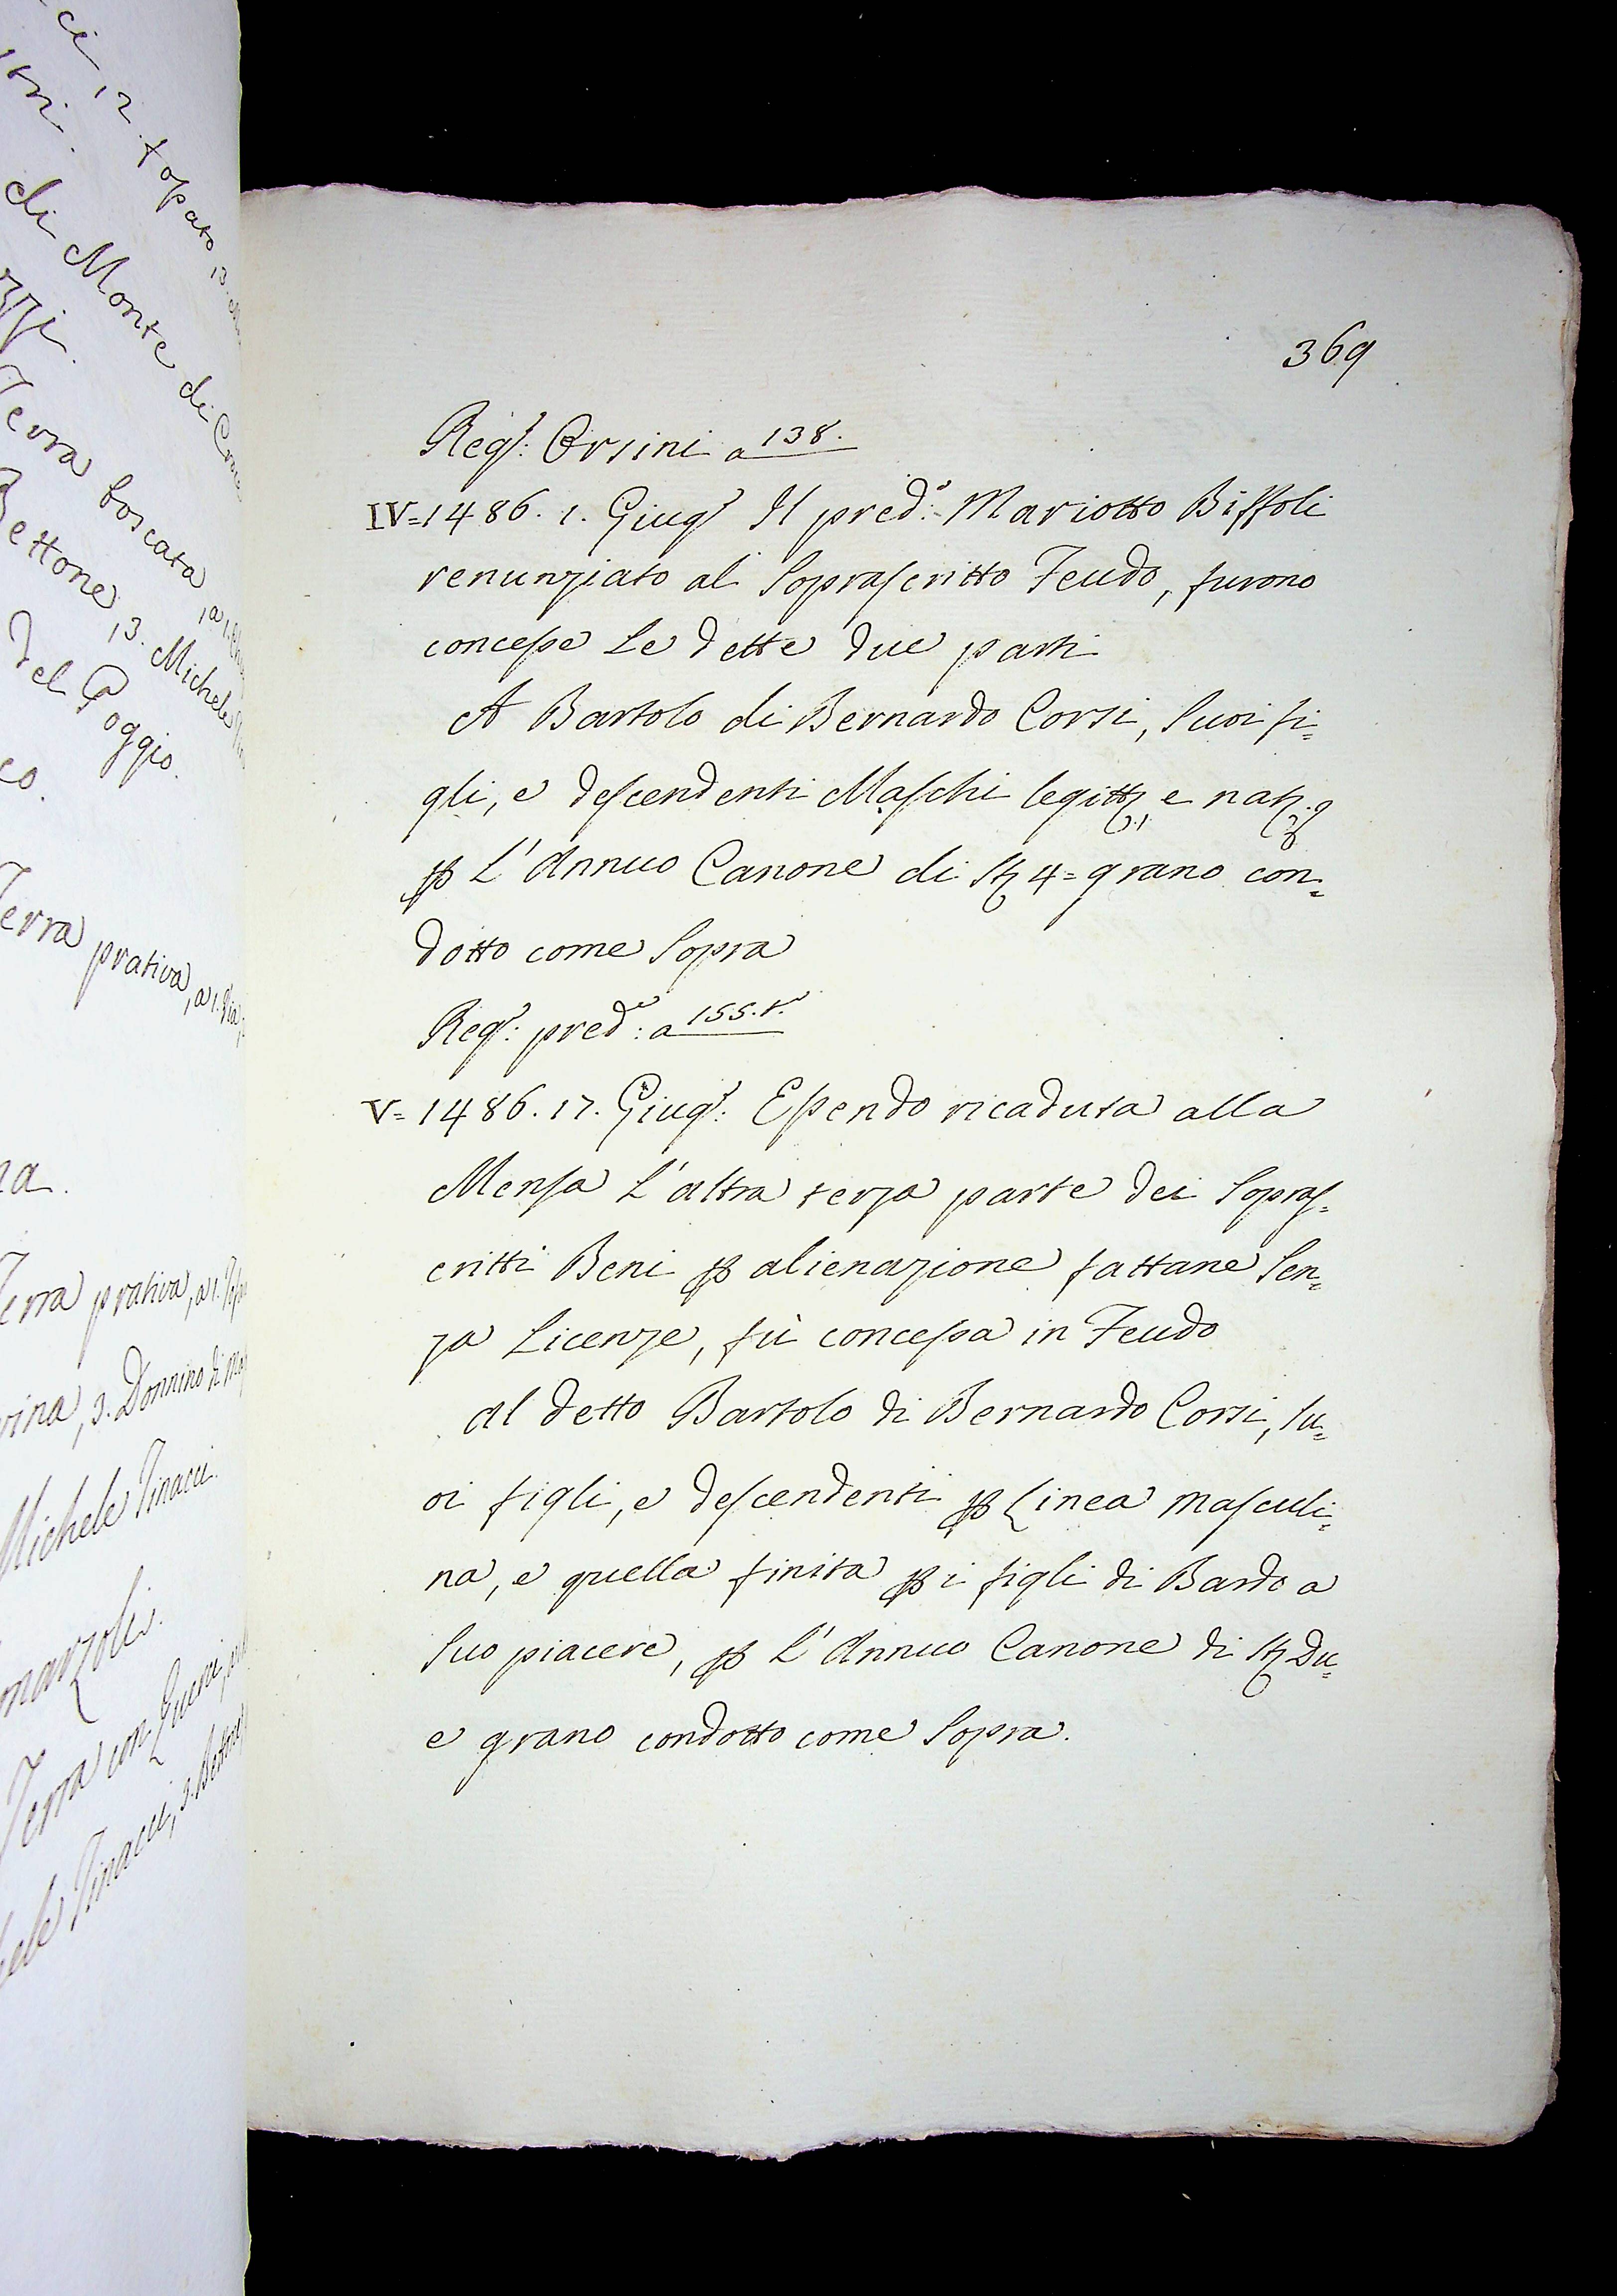 ci, 2. fossato, 3.
di Monte di
Terra boscata, a 1.
Bettone, 3. Michele
del Poggio.
co.
Terra prativa, a 1. Via,
na.
Terra prativa, a 1.
vina, 3. Donnino di
Michele Tinacci.
marzoli.
Terra con
Tinacci, 3.
369
Regº: Orsini a 138.
IV=1486. 1. Giugº Il predº: Mariotto Biffoli
renunziato al Soprascritto Feudo, furono
concesse Le dette due parti
A Bartolo di Bernardo Corsi, Suoi fi=
gli, e descendenti Maschi legitt:i, e nat:
ꝑ L' Annuo Canone di St 4= grano con=
dotto come Sopra
Regº: predº: a 155.tº
V= 1486. 17. Giugº: Essendo ricaduta alla
Mensa L' altra terza parte dei Sopras=
critti Beni ꝑ alienazione fattane Sen=
za Licenze, fù concessa in Feudo
al detto Bartolo di Bernardo Corsi, Su=
oi figli, e descendenti ꝑ Linea masculi=
na, e quella finita ꝑ i figli di Bardo a
Suo piacere, ꝑ L' Annuo Canone di St Du=
e grano condotto come Sopra.